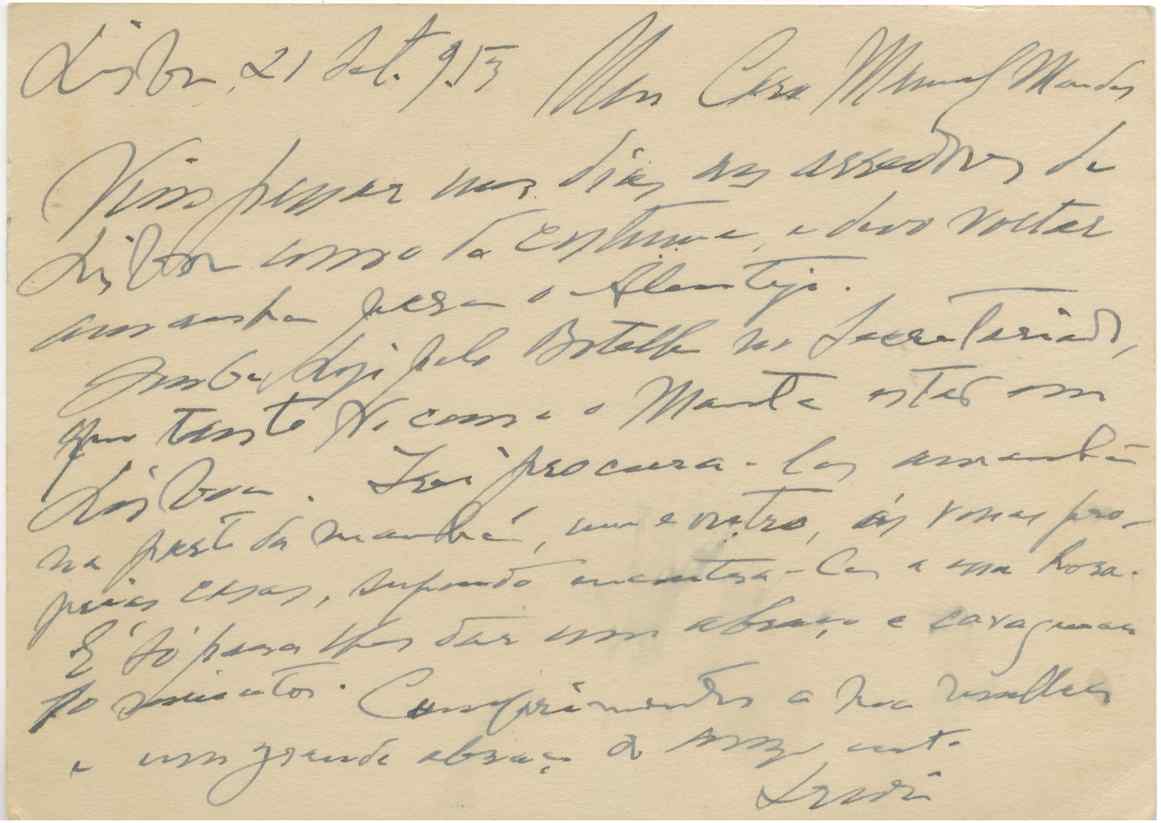 Lisboa, 21 Set. 953 Meu Caro Manuel Mendes
Vim passar uns dias nos arredores de
Lisboa como de costume, e devo voltar
amanhã para o Alentejo.
Soube hoje pelo Botelho no Secretariado,
que tanto V. como o Manta estão em
Lisboa. Irei procura-los amanhã
na parte da manhã, um e outro, ás vossas pro-
prias casas, supondo encontra-los a essa hora.
É só para lhes dar um abraço e cavaquear
10 minutos. Cumprimentos a sua mulher
e um grande abraço do amigo